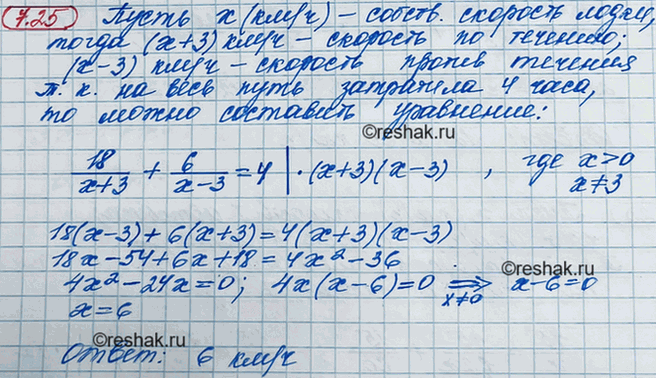 7.25 Пусть x (км/ч) – собств. скорость лодки,
тогда (x+3) км/ч – скорость по течению;
(x-3) км/ч – скорость против течения
т.к. на весь путь затратила 4 часа,
то можно составить уравнение:
©reshak.ru
18/(x+3) + 6/(x-3) = 4 | ·(x+3)(x-3) , где x>0
x≠3
18(x-3)+6(x+3)=4(x+3)(x-3)
18x-54+6x+18=4x²-36
©reshak.ru
4x²-24x=0; 4x(x-6)=0 ⟹ x-6=0
x≠0
x=6
©reshak.ru
Ответ: 6 км/ч